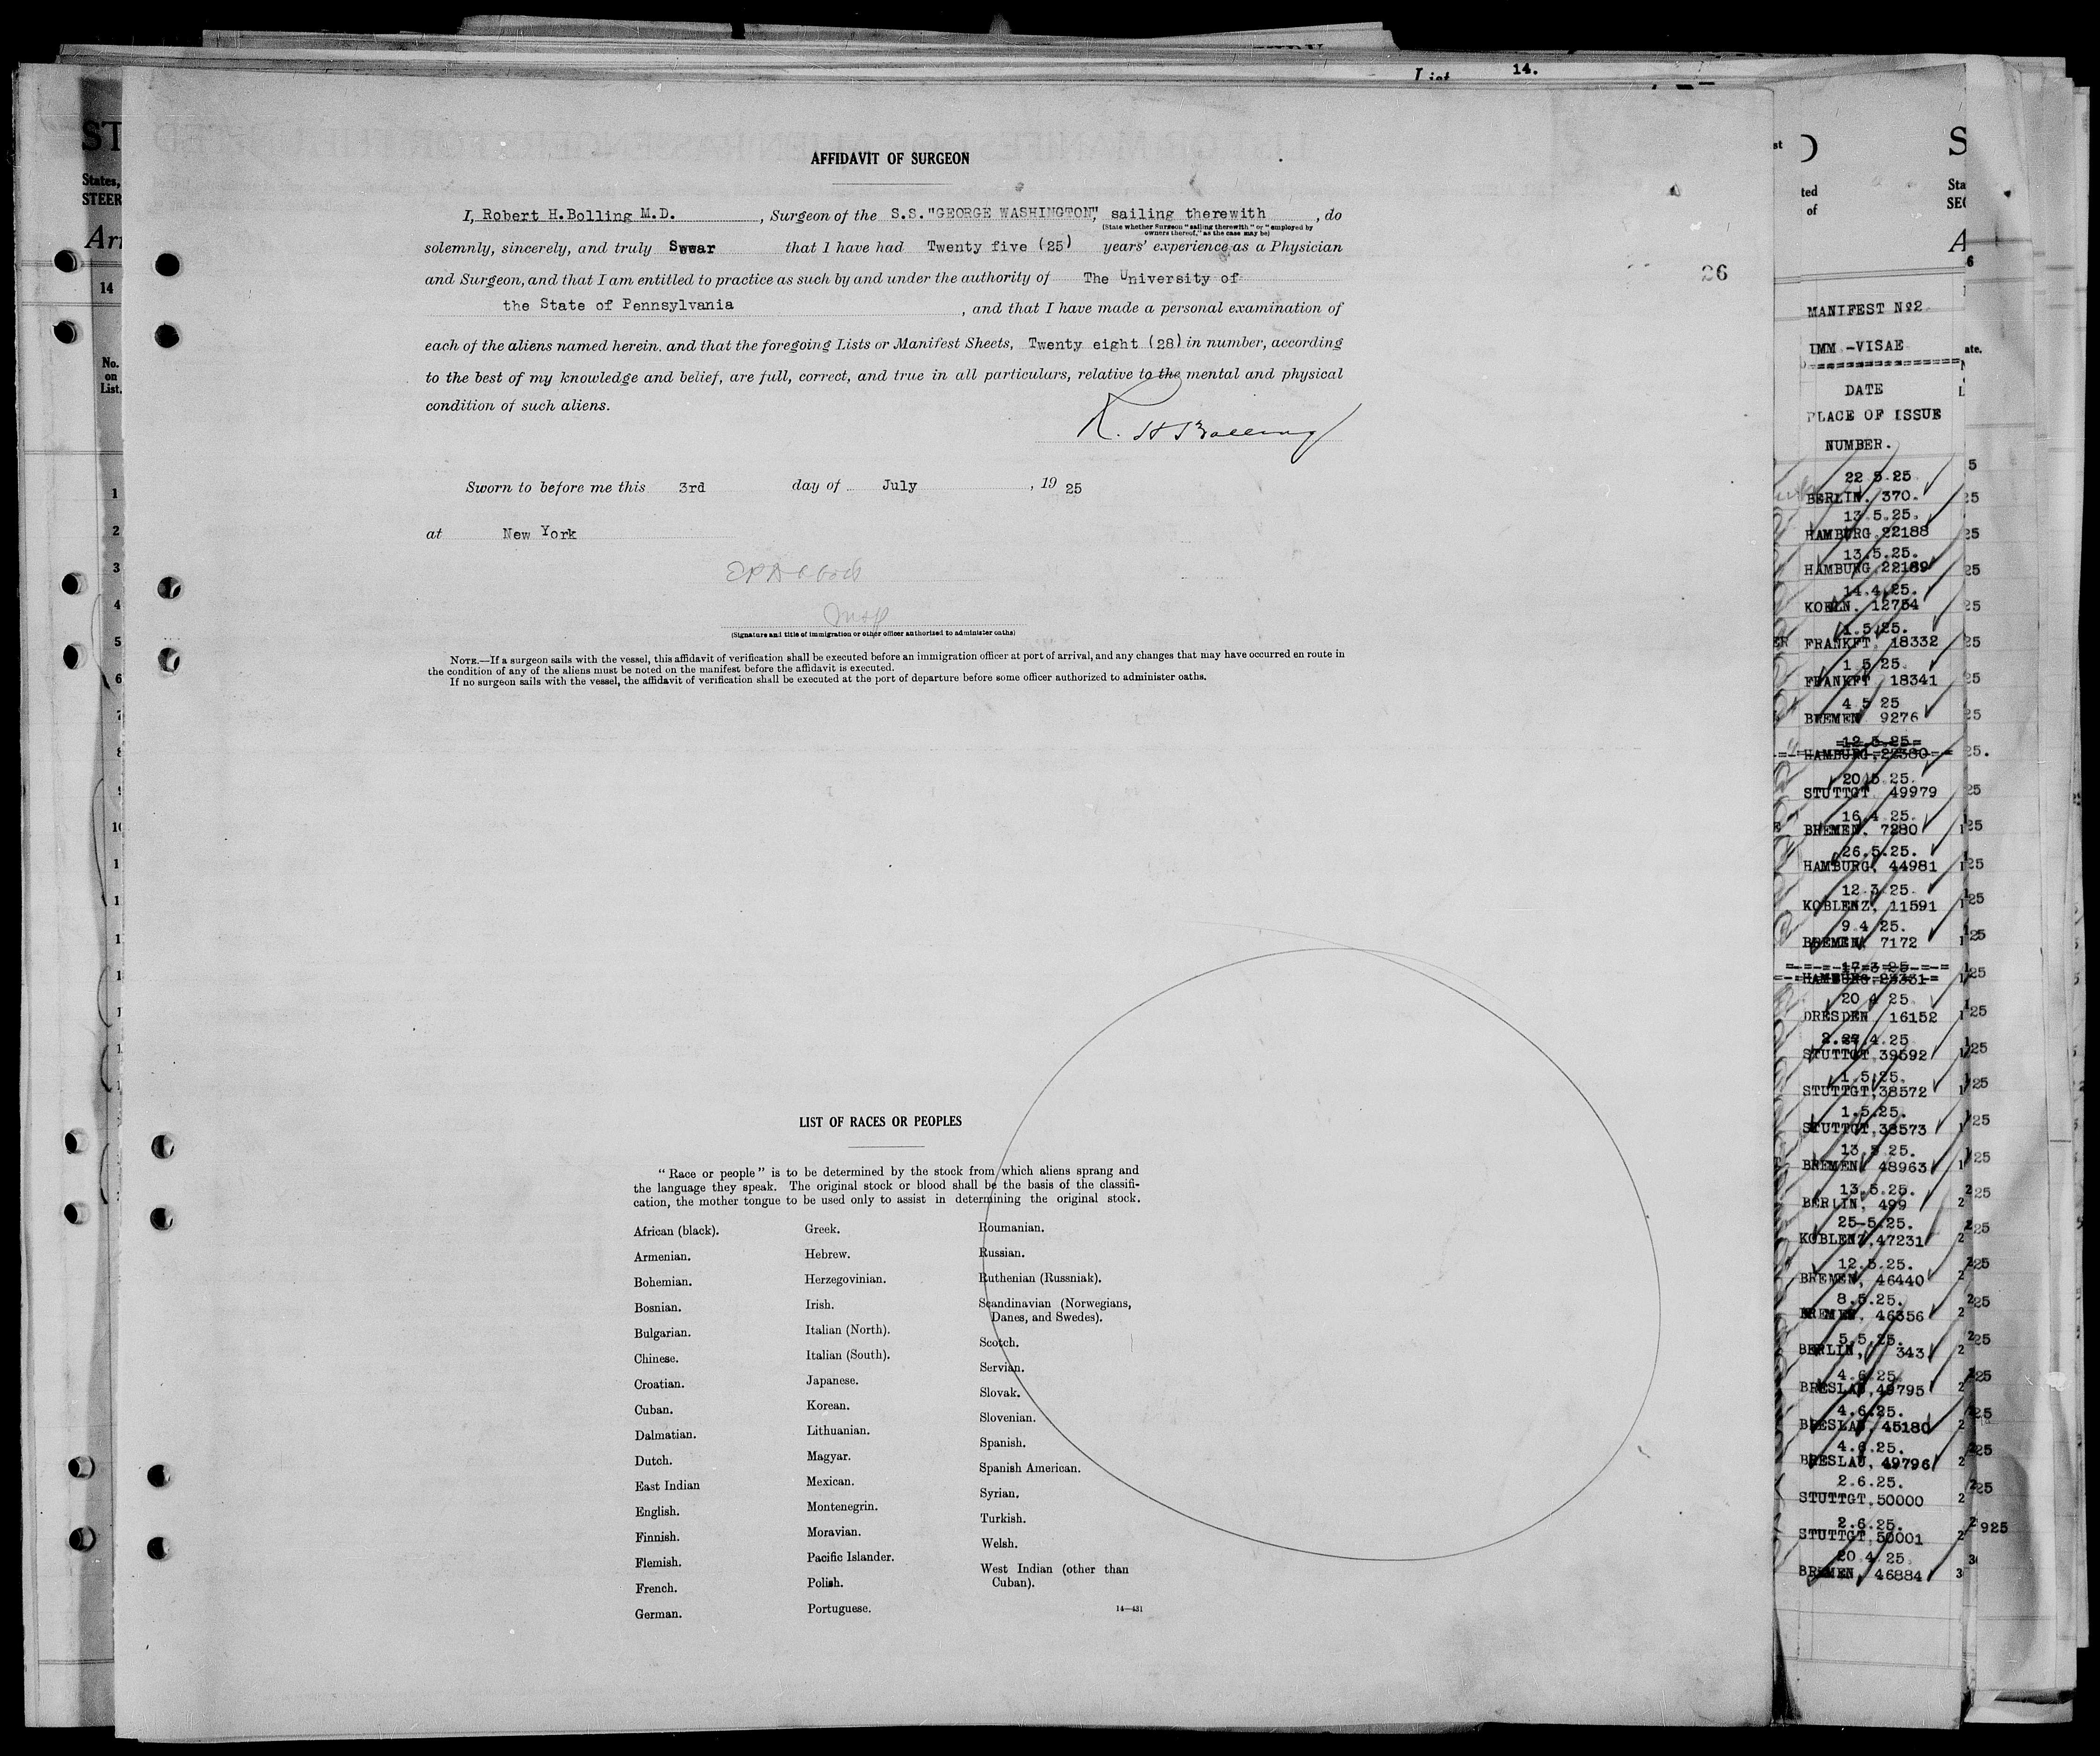 List 14.
AFFIDAVIT OF SURGEON
I, Robert H.Bolling M.D. , Surgeon of the S.S."GEORGE WASHINGTON", sailing therewith , do
(State whether Surgeon "sailing therewith" or "employed by
owners thereof," as the case may be)
solemnly, sincerely, and truly Swear that I have had Twenty five (25) years' experience as a Physician
and Surgeon, and that I am entitled to practice as such by and under the authority of The University of
the State of Pennsylvania , and that I have made a personal examination of
each of the aliens named herein. and that the foregoing Lists or Manifest Sheets, Twenty eight (28) in number, according
to the best of my knowledge and belief, are full, correct, and true in all particulars, relative to the mental and physical
condition of such aliens.
R. H Bolling
Sworn to before me this 3rd day of July , 19 25
at New York
Insp
(Signature and title of immigration or other officer authorized to administer oaths)
NOTE.—If a surgeon sails with the vessel, this affidavit of verification shall be executed before an immigration officer at port of arrival, and any changes that may have occurred en route in
the condition of any of the aliens must be noted on the manifest before the affidavit is executed.
If no surgeon sails with the vessel, the affidavit of verification shall be executed at the port of departure before some officer authorized to administer oaths.
26
LIST OF RACES OR PEOPLES
"Race or people" is to be determined by the stock from which aliens sprang and
the language they speak. The original stock or blood shall be the basis of the classifi-
cation, the mother tongue to be used only to assist in determining the original stock.
African (black).
Armenian.
Bohemian.
Bosnian.
Bulgarian.
Chinese.
Croatian.
Cuban.
Dalmatian.
Dutch.
East Indian
English.
Finnish.
Flemish.
French.
German.
Greek.
Hebrew.
Herzegovinian.
Irish.
Italian (North).
Italian (South).
Japanese.
Korean.
Lithuanian.
Magyar.
Mexican.
Montenegrin.
Moravian.
Pacific Islander.
Polish.
Portuguese.
Roumanian.
Russian.
Ruthenian (Russniak).
Scandinavian (Norwegians,
Danes, and Swedes).
Scotch.
Servian.
Slovak.
Slovenian.
Spanish.
Spanish American.
Syrian.
Turkish.
Welsh.
West Indian (other than
Cuban).
14—431
ST
States,
STEER
Arr
14
No.
on
List.
1
2
3
4
5
6
7
8
9
MANIFEST No2.
IMM -VISAE
DATE
PLACE OF ISSUE
NUMBER.
22 5.25.
BERLIN. 370.
13.5.25.
HAMBURG.22188
13.5.25.
HAMBURG.22189
14.4.25.
KOELN. 12754
1.5.25.
FRANKFT. 18332
1 5 25.
FRANKFT 18341
4 5 25
BREMEN 9276
12.5.25
HAMBURG.22380
20.5.25.
STUTTGT. 49979
16.4 25.
BREMEN. 7280
26.5.25.
HAMBURG. 44981
12.3.25.
KOBLENZ. 11591
9 4 25.
BREMEN. 7172
17.3 25
HAMBURG.23331
20 4 25
DRESDEN 16152
4.25
STUTTGT.39592
1.5.25.
STUTTGT.38572
1.5.25.
STUTTGT.38573
13.5 25.
BREMEN. 48963
13.5.25.
BERLIN, 499
25-5.25.
KOBLENZ,47231
12.5.25.
BREMEN, 46440
8.5.25.
BREMEN. 46356
5.5.25.
BERLIN, 343
4.6.25.
BRESLAU,49795
4.6.25.
BRESLAU, 45180
4.6.25.
BRESLAU, 49796
2.6.25.
STUTTGT.50000
2.6.25.
STUTTGT.50001
20 4 25
BREMEN, 46884
925